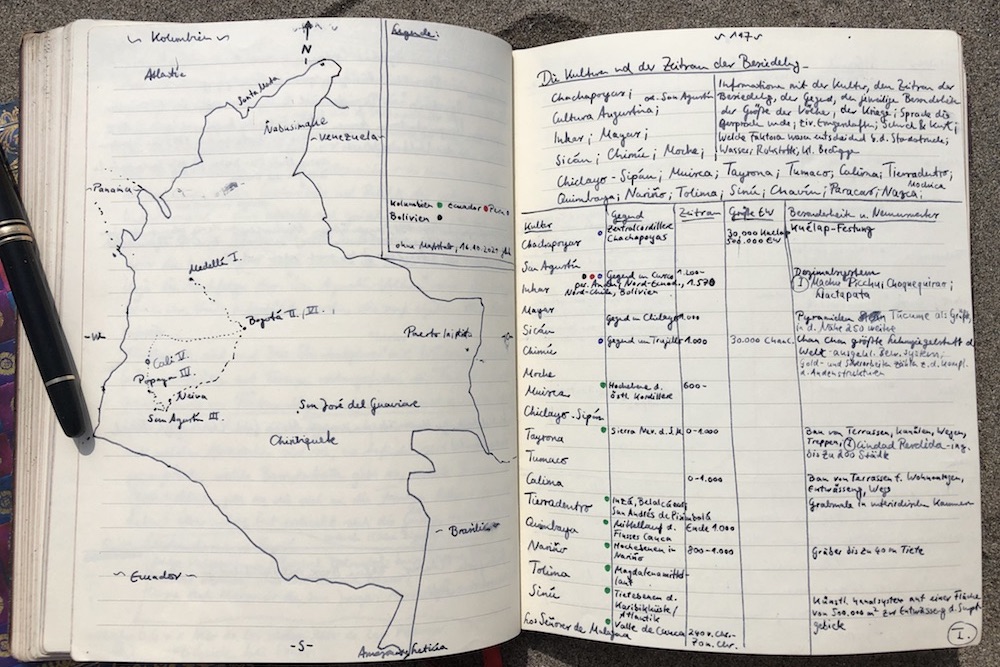 ~ Kolumbien ~
N
Legende:
Atlantic
Santa Marta
Nabusimake
Venezuela
Panama
Kolumbien Ecuador Peru
Bolivien
ohne Maßstab, 16.10.2021
Medellín I.
Bogotá II., VI.
-W-
Puerto
Cali V.
Popayan III.
Neiva
San Agustín III.
San José del Guaviare
Chiribiquete
Brasilien
~ Ecuador ~
-S-
~ 117 ~
Die Kulturen und der Zeitraum der Besiedelg.
Chachapoyas;
Cultura Augustina; od. San Agustín
Inkas; Mayas;
Sicán; Chimú; Moche;
Informationen mit der Kultur, den Zeitraum der
Besiedelg, der Gegend, den jeweilige Besonderheiten
der Größe der Völker, der Kriege; Sprache die
gesprochen wurde;
Welche Faktoren waren entscheidend f. d. Standorte;
Wasser, Rohstoffe,
Chiclayo-Sipán; Muisca; Tayrona; Tumaco; Calima; Tierradentro;
Quimbaya; Nariño; Tolima; Sinú; Chavín; Paracas; Nazca;
Kultur Gegend Zeitraum Größe EW Besonderheit u. Nennenswertes
Chachapoyas Zentralcordillere Chachapoyas 30.000 Kuélap 500.000 EW Kuélap-Festung
San Agustín
Inkas Gegend in Cusco, per. Anden, Nord-Chile, Bolivien 1.200- Dezimalsystem
I Machu Picchu; Choquequirao;
Llactapata
Mayas
Sicán Gegend in Chiclayo 1.000 Pyramiden Túcume als Größte,
in d. Nähe 250 weitere
Chimú Gegend um Trujillo 1.000 30.000 Chan C. Chan Chan größte Lehmziegelstadt d.
Welt - ausgekl. Bew. system;
Gold- und Silberarbeiten zählen z. d. kompl.
d. Andenstrukturen
Moche
Muisca Hochebene d. östl. Kordillere 600-
Chiclayo-Sipán
Tayrona Sierra Nev. d. S. M. 0-1.000 Bau von Terrassen, Kanälen, Wegen,
Treppen, I Ciudad Perdida - ins.
bis zu 200 Städte
Tumaco
Calima 0-1.000 Bau von Terrassen f. Wohnanlagen,
Entwässerg, Wege
Tierradentro Inzá, Belalcázar, San Andrés de Pisimbalá Grabmale in unterirdischen Kammern
Quimbaya Mittellauf d. Flusses Cauca Ende 1.000
Nariño Hochebenen in Nariño 800-1.000 Gräber bis zu 40 m Tiefe
Tolima Magdalenamittellauf
Sinú Tiefebenen d. Karibikküste/Atlantik Künstl. Kanalsystem auf einer Fläche
von 500.000 m² zur Entwässerg d. Sumpf-
gebiete
Los Señores de Malagana Valle de Cauca 240 v. Chr.-
70 n. Chr.
I.